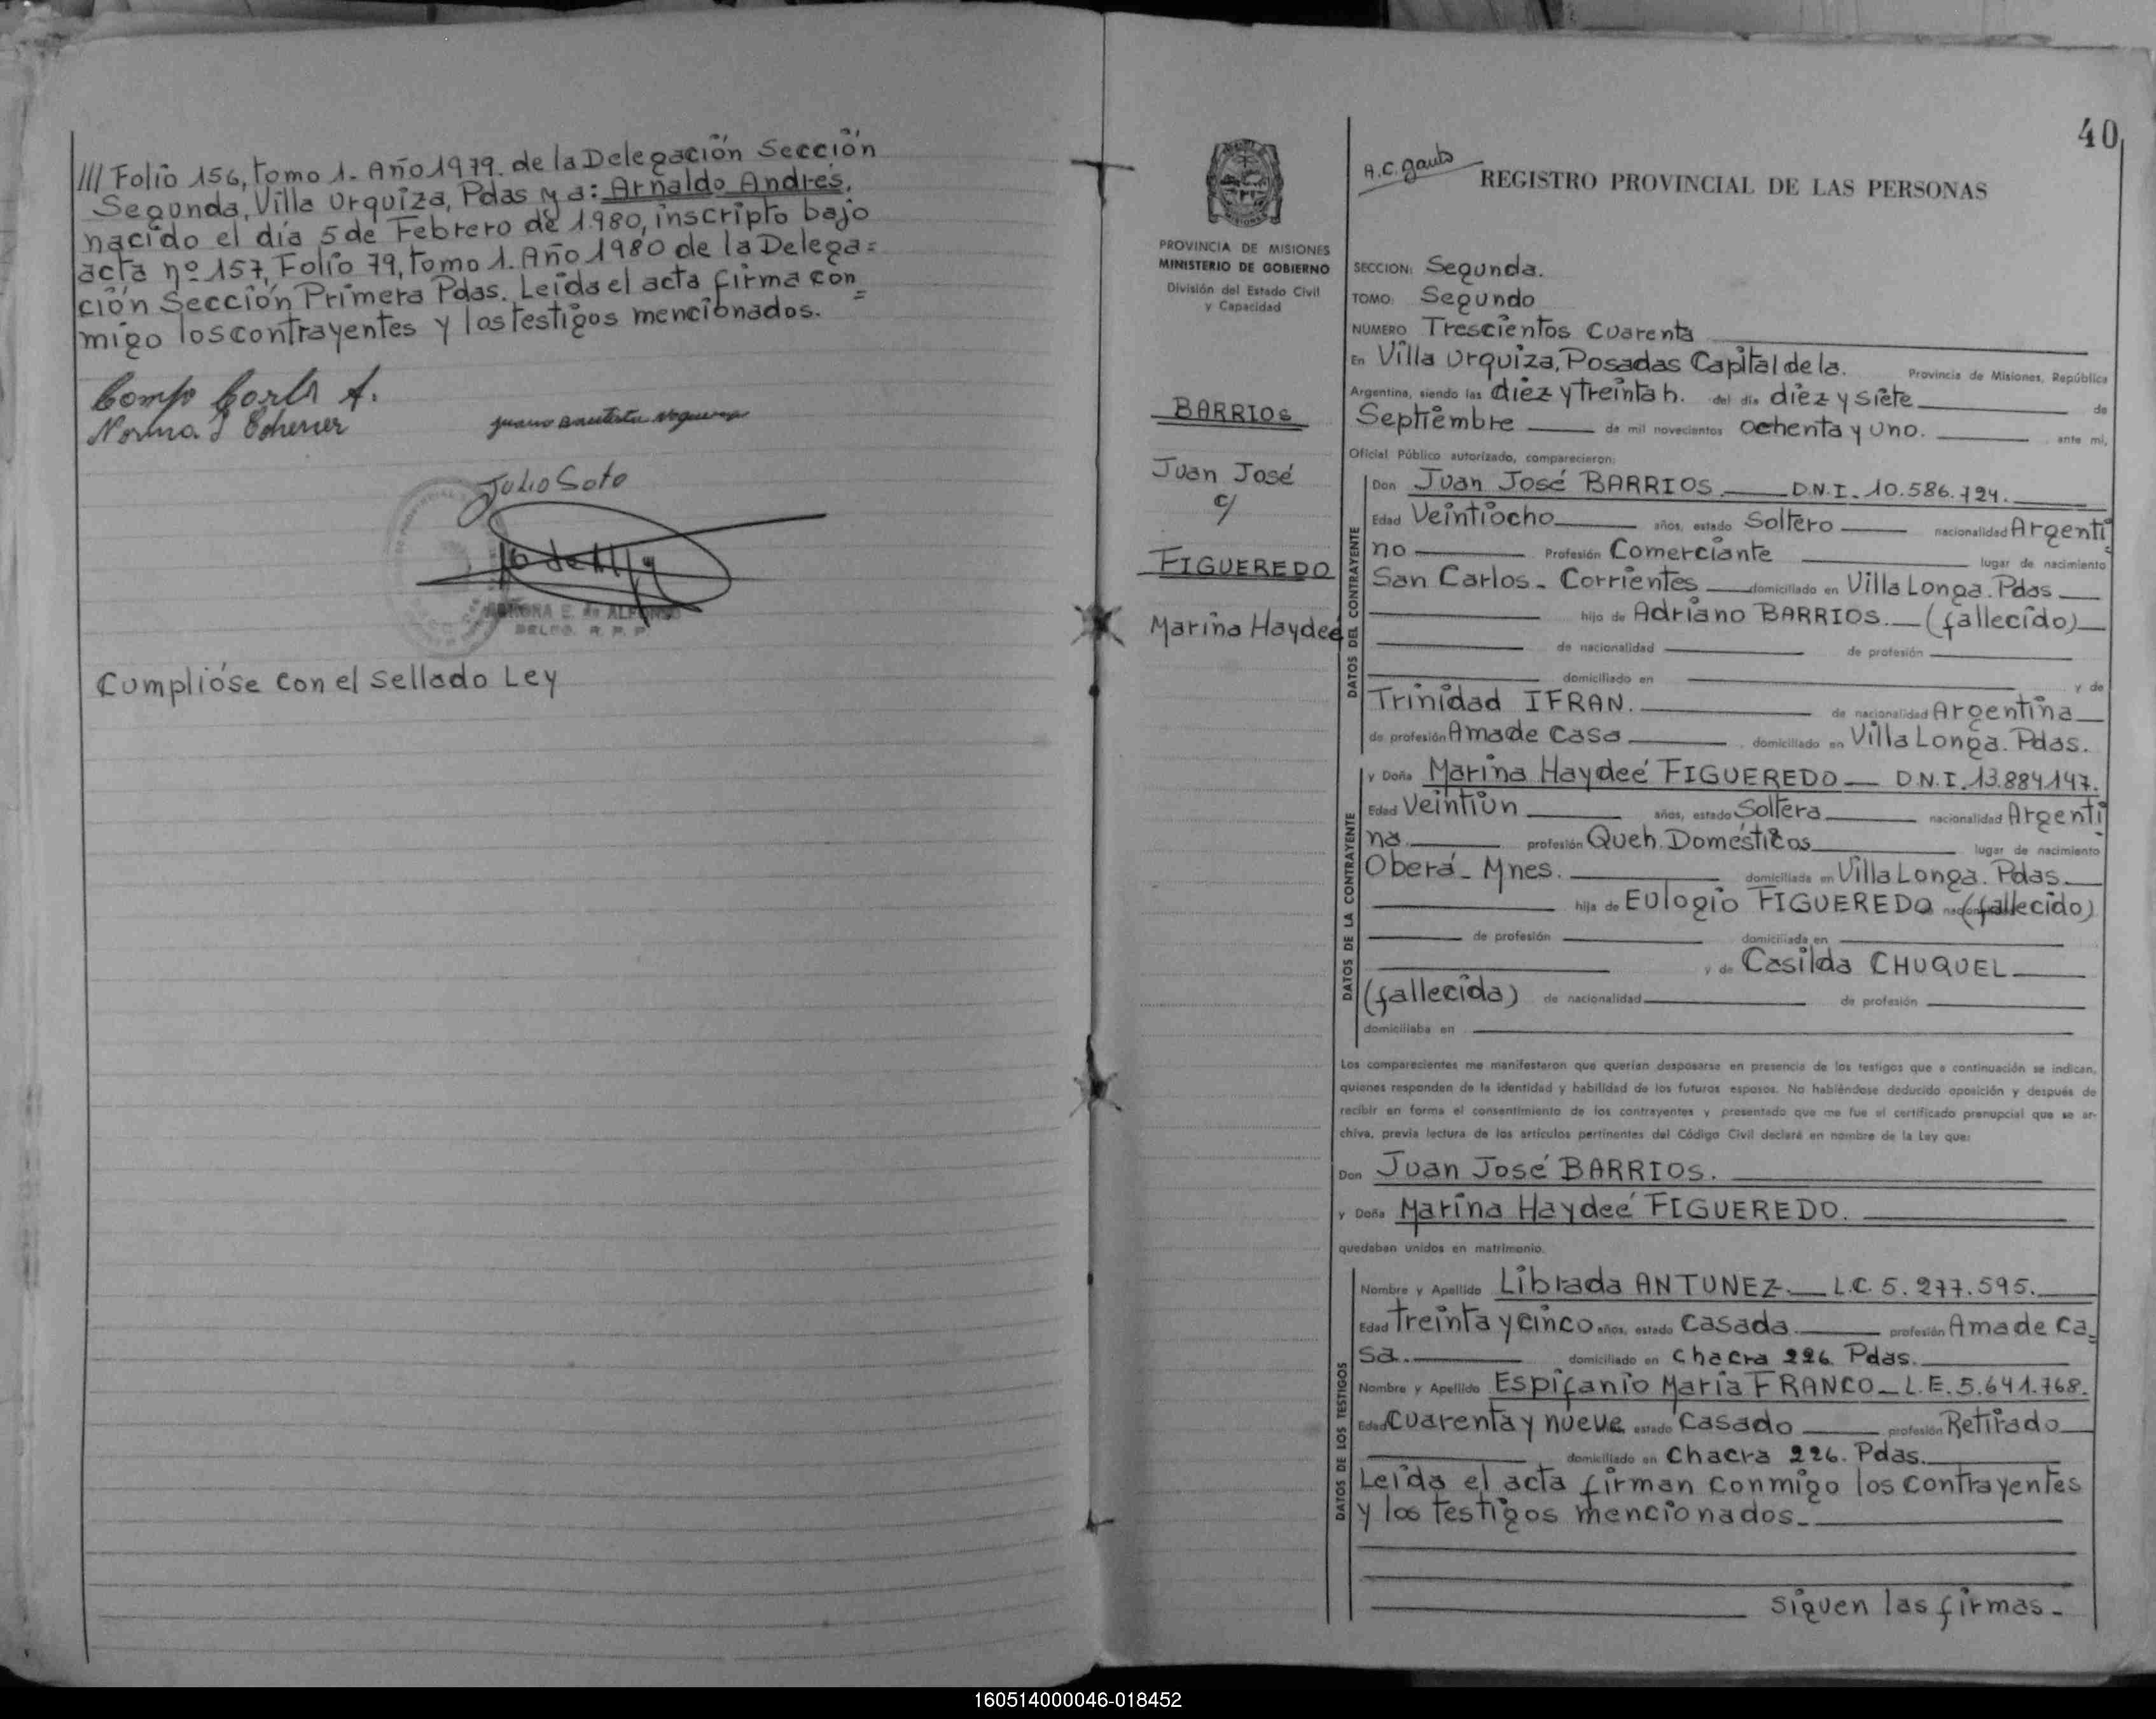 /// Folio 156, tomo 1. Año 1979. de la Delegación Sección
Segunda, Villa Urquiza, Pdas y a: Arnaldo Andrés,
nacido el día 5 de Febrero de 1.980, inscripto bajo
acta nº 157, Folio 79, tomo 1. Año 1980 de la Delega=
ción Sección Primera Pdas. Leida el acta firma con=
migo los contrayentes y los testigos mencionados.
Julio Soto
DELEG. R. P. P.
Cumplióse con el sellado Ley
40
A.C. Gauto
REGISTRO PROVINCIAL DE LAS PERSONAS
PROVINCIA DE MISIONES
MINISTERIO DE GOBIERNO
División del Estado Civil
y Capacidad
BARRIOS
Juan José
c/
FIGUEREDO
Marina Haydeé
SECCION: Segunda.
TOMO: Segundo
NUMERO Trescientos Cuarenta
En Villa Urquiza, Posadas Capital de la. Provincia de Misiones, República
Argentina, siendo las diez y treinta h. del día diez y siete de
Septiembre de mil novecientos ochenta y uno. ante mí,
Oficial Público autorizado, comparecieron:
DATOS DEL CONTRAYENTE
Don Juan José BARRIOS. D.N.I. 10.586.724.
Edad Veintiocho años, estado Soltero nacionalidad Argenti
no Profesión Comerciante lugar de nacimiento
San Carlos - Corrientes domiciliado en Villa Longa. Pdas
hijo de Adriano BARRIOS. (fallecido)
de nacionalidad de profesión
domiciliado en y de
Trinidad IFRAN. de nacionalidad Argentina
de profesión Ama de casa domiciliado en Villa Longa. Pdas.
DATOS DE LA CONTRAYENTE
y Doña Marina Haydeé FIGUEREDO D.N.I. 13.884147.
Edad Veintiun años, estado Soltera nacionalidad Argenti
na. profesión Queh. Domésticos lugar de nacimiento
Oberá - Mnes. domiciliada en Villa Longa. Pdas.
hija de Eulogio FIGUEREDO (fallecido)
de profesión domiciliada en
y de Casilda CHUQUEL
(fallecida) de nacionalidad de profesión
domiciliaba en
Los comparecientes me manifestaron que querían desposarse en presencia de los testigos que a continuación se indican,
quienes responden de la identidad y habilidad de los futuros esposos. No habiéndose deducido oposición y después de
recibir en forma el consentimiento de los contrayentes y presentado que me fue el certificado prenupcial que se ar-
chiva, previa lectura de los artículos pertinentes del Código Civil declaré en nombre de la Ley que:
Don Juan José BARRIOS.
y Doña Marina Haydeé FIGUEREDO.
quedaban unidos en matrimonio.
DATOS DE LOS TESTIGOS
Nombre y Apellido Librada ANTUNEZ. L.C. 5.277.595.
Edad treinta y cinco años, estado Casada. profesión Ama de ca=
sa. domiciliado en Chacra 226 Pdas.
Nombre y Apellido Espifanio María FRANCO - L.E. 5.641.768.
Edad Cuarenta y nueve estado Casado profesión Retirado
domiciliado en Chacra 226. Pdas.
Leida el acta firman conmigo los contrayentes
y los testigos mencionados.
siguen las firmas.
160514000046-018452